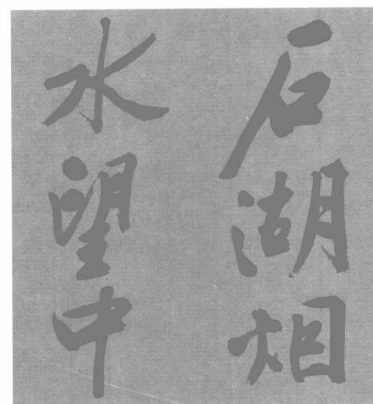 石湖烟
水望中